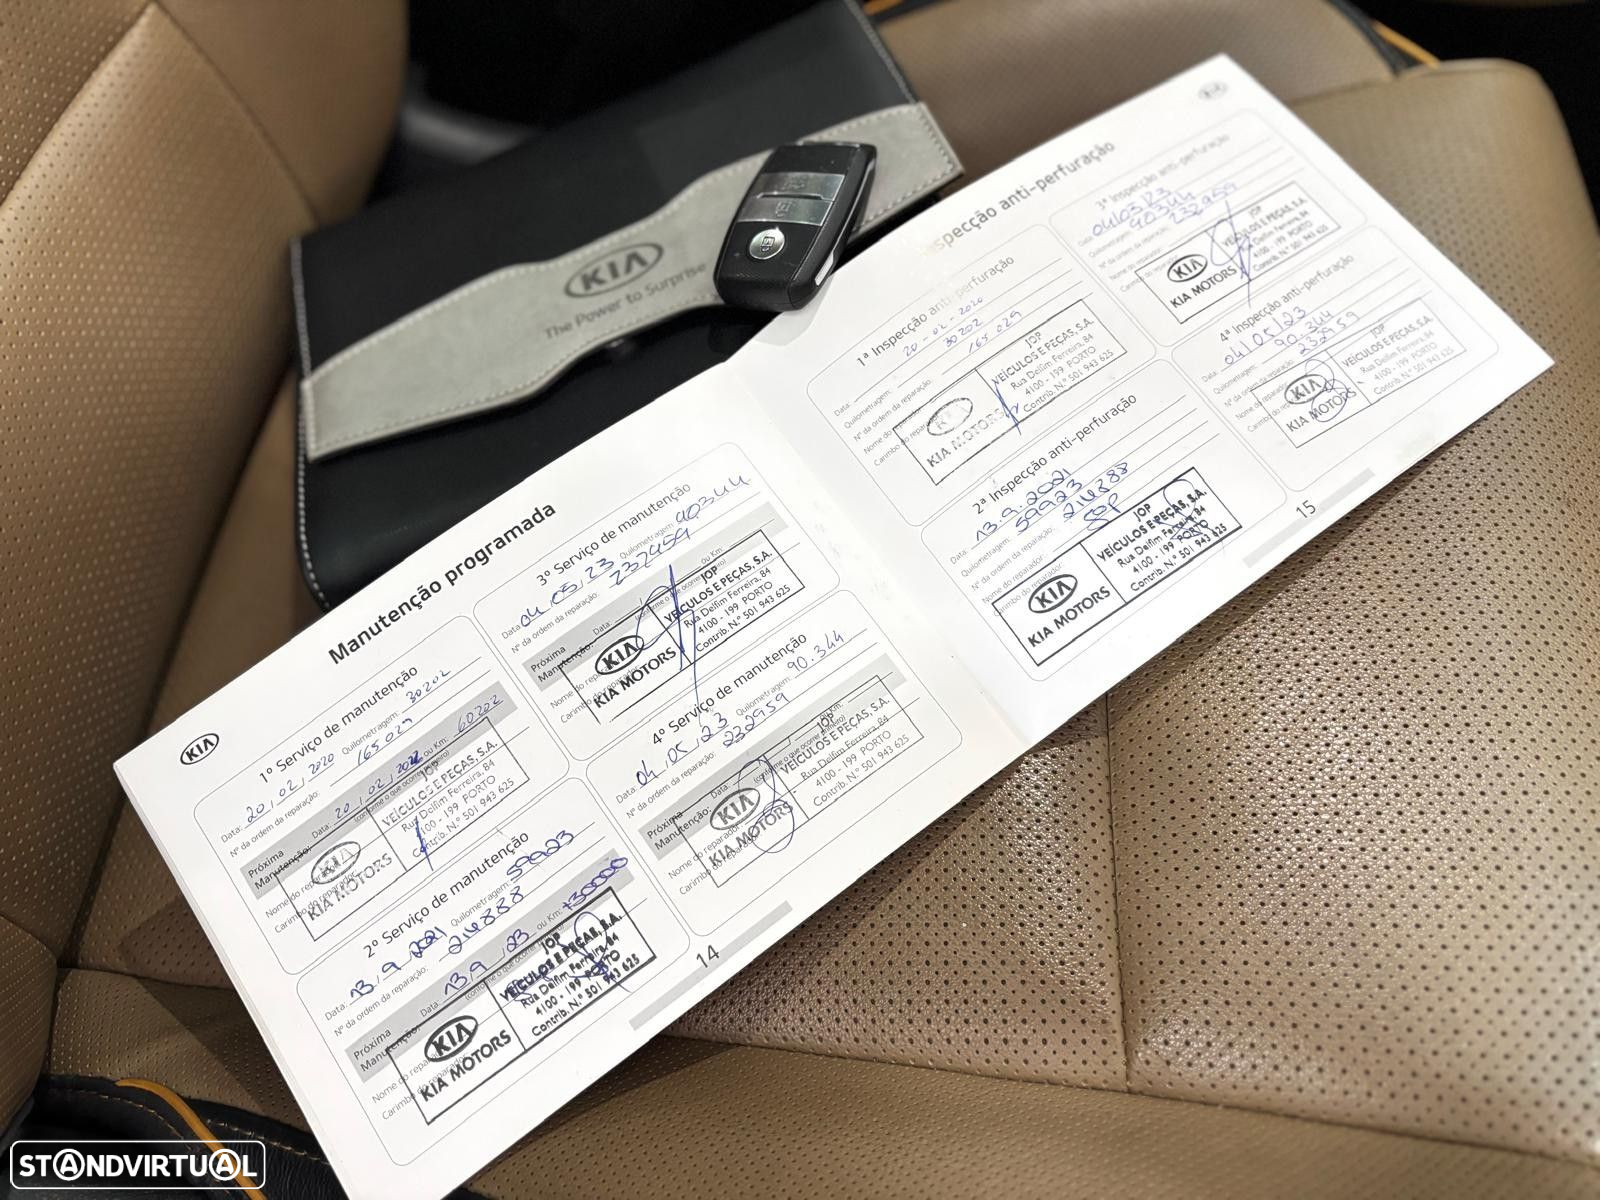 KIA
The Power to Surprise
KIA
Manutenção programada
1º Serviço de manutenção
Data: 20 / 02 / 2020 Quilometragem: 30202
Nº da ordem da reparação: 165029
Próxima
Manutenção: Data: 20 / 02 / ou Km: 60202
(conforme o que ocorrer primeiro)
Nome do reparador
Carimbo do reparador
KIA
KIA MOTORS
JOP
VEÍCULOS E PEÇAS, S.A.
Rua Delfim Ferreira, 84
4100 - 199 PORTO
Contrib. N.º 501 943 625
2º Serviço de manutenção
Data: 13 / 9 / 2021 Quilometragem: 59923
Nº da ordem da reparação: 214888
Próxima
Manutenção: Data: 13 / 9 / 23 ou Km: +30000
(conforme o que ocorrer primeiro)
Nome do reparador
Carimbo do reparador
KIA
KIA MOTORS
JOP
VEÍCULOS E PEÇAS, S.A.
Rua Delfim Ferreira, 84
4100 - 199 PORTO
Contrib. N.º 501 943 625
3º Serviço de manutenção
Data: 04 / 05 / 23 Quilometragem: 90344
Nº da ordem da reparação: 232959
Próxima
Manutenção: Data: ou Km:
(conforme o que ocorrer primeiro)
Nome do reparador
Carimbo do reparador
KIA
KIA MOTORS
JOP
VEÍCULOS E PEÇAS, S.A.
Rua Delfim Ferreira, 84
4100 - 199 PORTO
Contrib. N.º 501 943 625
4º Serviço de manutenção
Data: 04 / 05 / 23 Quilometragem: 90.344
Nº da ordem da reparação: 232959
Próxima
Manutenção: Data: ou Km:
(conforme o que ocorrer primeiro)
Nome do reparador
Carimbo do reparador
KIA
KIA MOTORS
JOP
VEÍCULOS E PEÇAS, S.A.
Rua Delfim Ferreira, 84
4100 - 199 PORTO
Contrib. N.º 501 943 625
14
KIA
Inspecção anti-perfuração
1ª Inspecção anti-perfuração
Data: 20 - 02 - 2020
Quilometragem: 30202
Nº da ordem da reparação: 165029
Nome do reparador
Carimbo do reparador
KIA
KIA MOTORS
JOP
VEÍCULOS E PEÇAS, S.A.
Rua Delfim Ferreira, 84
4100 - 199 PORTO
Contrib. N.º 501 943 625
2ª Inspecção anti-perfuração
Data: 13.9.2021
Quilometragem: 59923
Nº da ordem da reparação: 214888
Nome do reparador: JOP
Carimbo do reparador:
KIA
KIA MOTORS
JOP
VEÍCULOS E PEÇAS, S.A.
Rua Delfim Ferreira, 84
4100 - 199 PORTO
Contrib. N.º 501 943 625
3ª Inspecção anti-perfuração
Data:
Quilometragem: 90344
Nº da ordem da reparação: 232959
Nome do reparador
Carimbo do reparador
KIA
KIA MOTORS
JOP
VEÍCULOS E PEÇAS, S.A.
Rua Delfim Ferreira, 84
4100 - 199 PORTO
Contrib. N.º 501 943 625
4ª Inspecção anti-perfuração
Data: 04/05/23
Quilometragem: 90.344
Nº da ordem da reparação: 232959
Nome do reparador
Carimbo do reparador
KIA
KIA MOTORS
JOP
VEÍCULOS E PEÇAS, S.A.
Rua Delfim Ferreira, 84
4100 - 199 PORTO
Contrib. N.º 501 943 625
15
STANDVIRTUAL